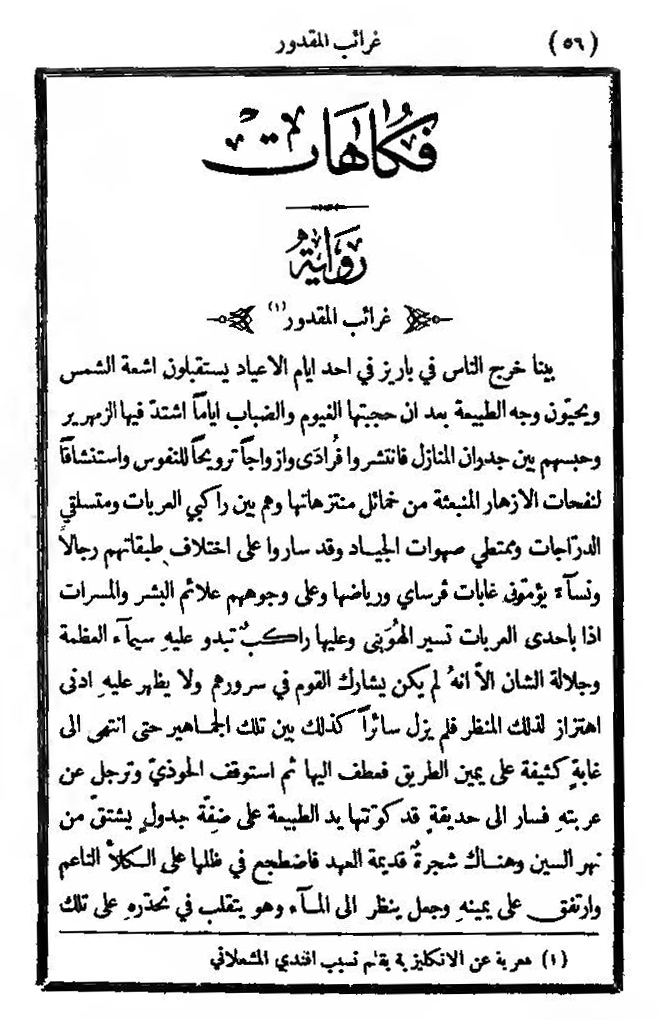 (٥٦)
غرائب المقدور
فكاهات
رواية
غرائب المقدور (١)
بينا خرج الناس في باريز في احد ايام الاعياد يستقبلون اشعة الشمس
ويحيّون وجه الطبيعة بعد ان حجبتها الغيوم والضباب اياماً اشتدّ فيها الزمهرير
وحبسهم بين جدران المنازل فانتشروا فُرادَى وازواجاً ترويحاً للنفوس واستنشاقاً
لنفحات الازهار المنبعثة من خمائل منتزهاتها وهم بين راكبي العربات ومتسلقي
الدرّاجات وممتطي صهوات الجياد وقد ساروا على اختلاف طبقاتهم رجالاً
ونسآءً يؤمّون غابات ڤرساي ورياضها وعلى وجوههم علائم البشر والمسرات
اذا باحدى العربات تسير الهُوَينى وعليها راكبٌ تبدو عليهِ سيمآء العظمة
وجلالة الشان الاّ انهُ لم يكن يشارك القوم في سرورهم ولا يظهر عليهِ ادنى
اهتزاز لذلك المنظر فلم يزل سائراً كذلك بين تلك الجماهير حتى انتهى الى
غابةٍ كثيفة على يمين الطريق فعطف اليها ثم استوقف الحوذيّ وترجل عن
عربتهِ فسار الى حديقةٍ قد كوّنتها يد الطبيعة على ضفّة جدولٍ يشتقّ من
نهر السين وهناك شجرةٌ قديمة العهد فاضطجع في ظلها على الكلأ الناعم
وارتفق على يمينهِ وجعل ينظر الى المآء وهو يتقلب في تحدّرهِ على تلك
(١) معربة عن الانكليزية بقلم نسيب افندي المشعلاني